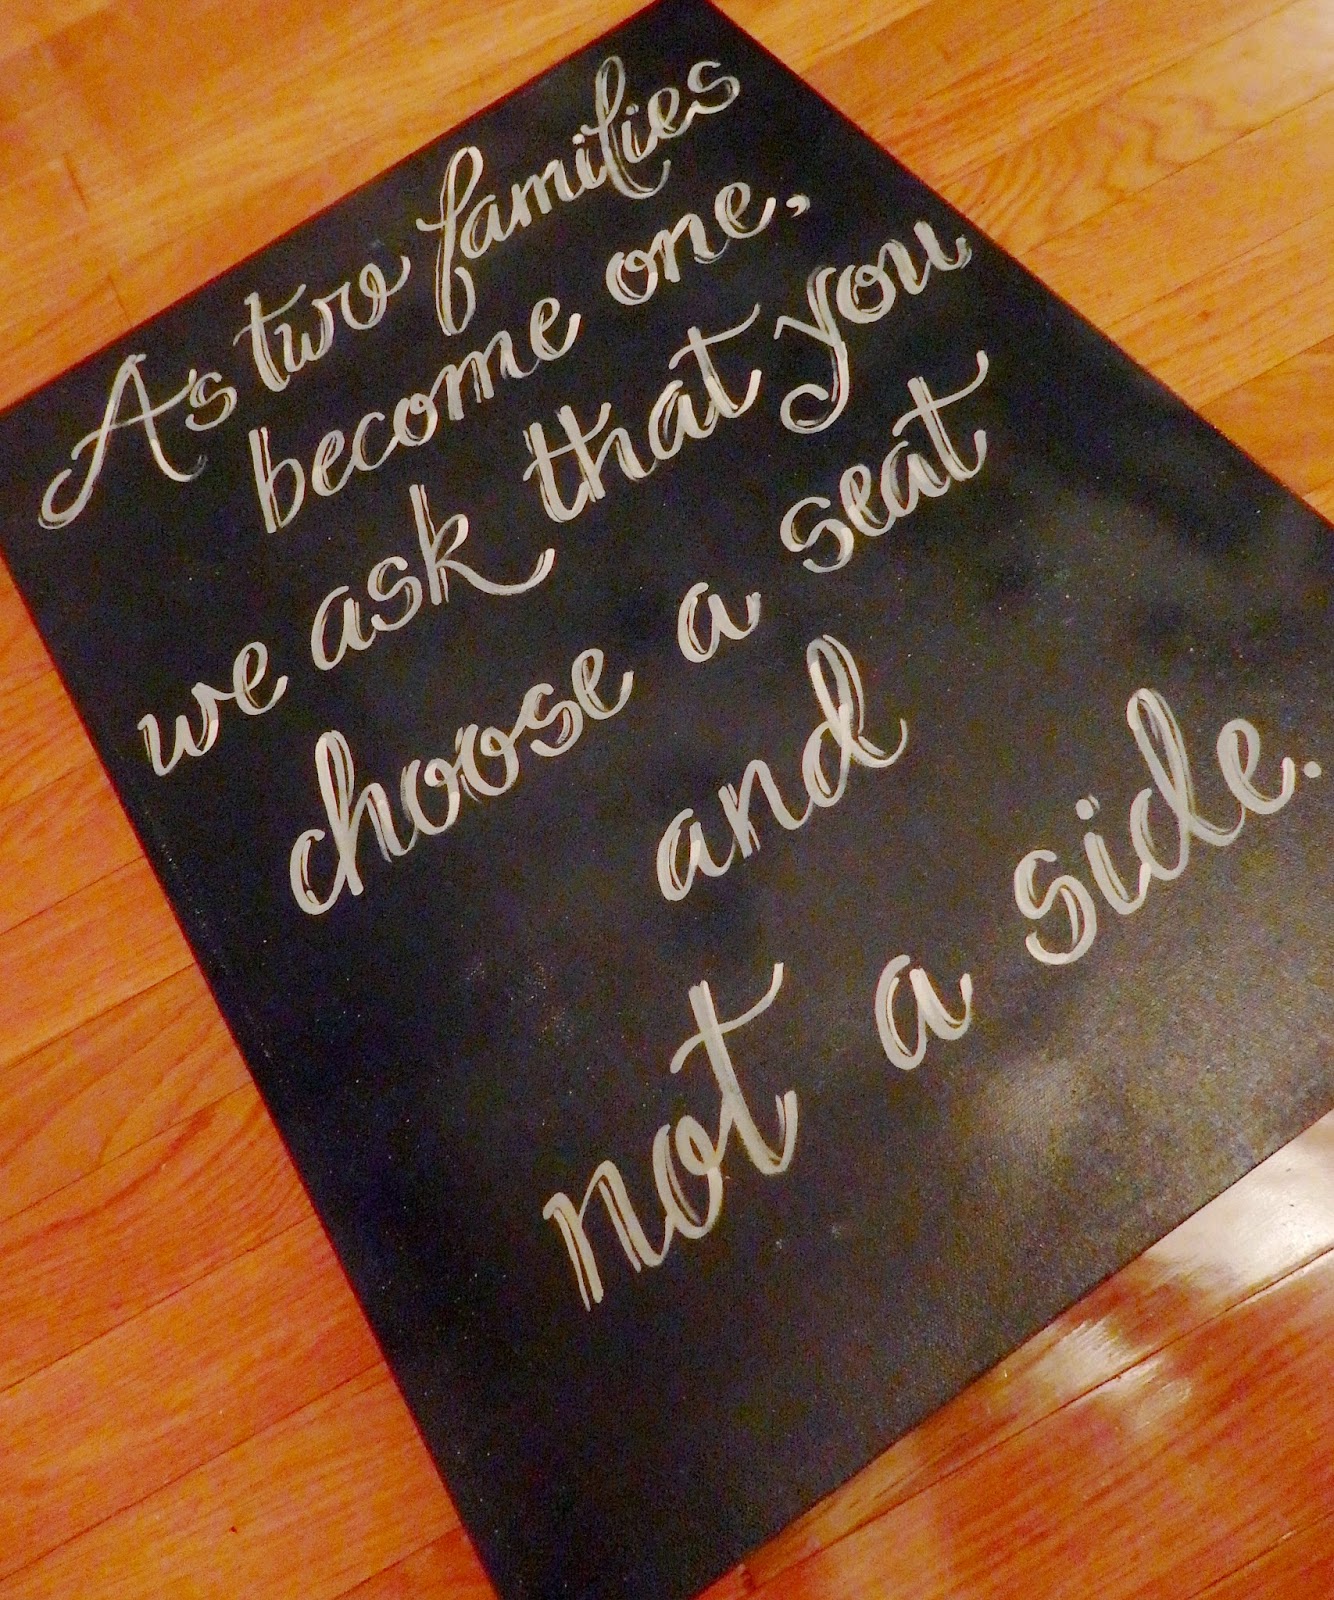 As two families
become one,
we ask that you
choose a seat
and
not a side.